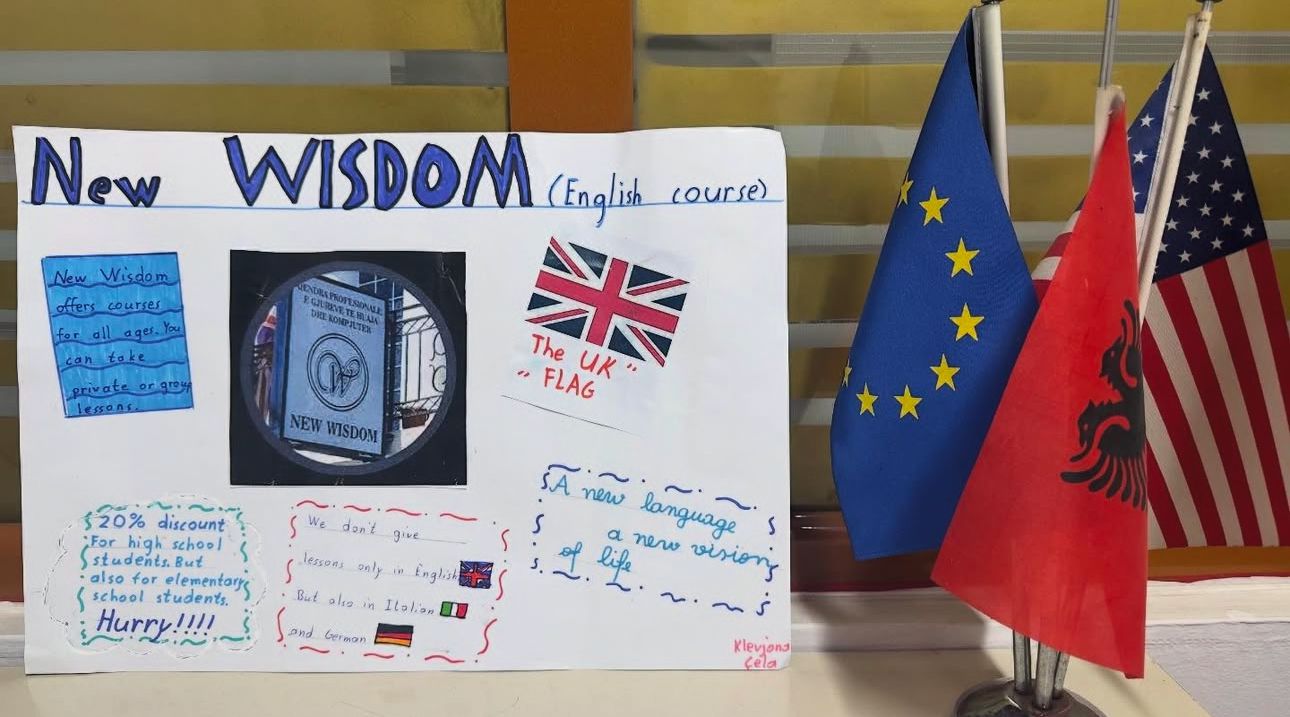 New WISDOM (English course)
New Wisdom
offers courses
for all ages. You
can take
private or group
lessons.
QENDRA PROFESIONALE
E GJUHEVE TE HUAJA
DHE KOMPJUTER
NEW WISDOM
The UK "
" FLAG
20% discount
For high school
students. But
also for elementary
school students.
Hurry!!!!
We don't give
lessons only in English
But also in Italian
and German
A new language
a new vision
of life
Klevjona
Çela